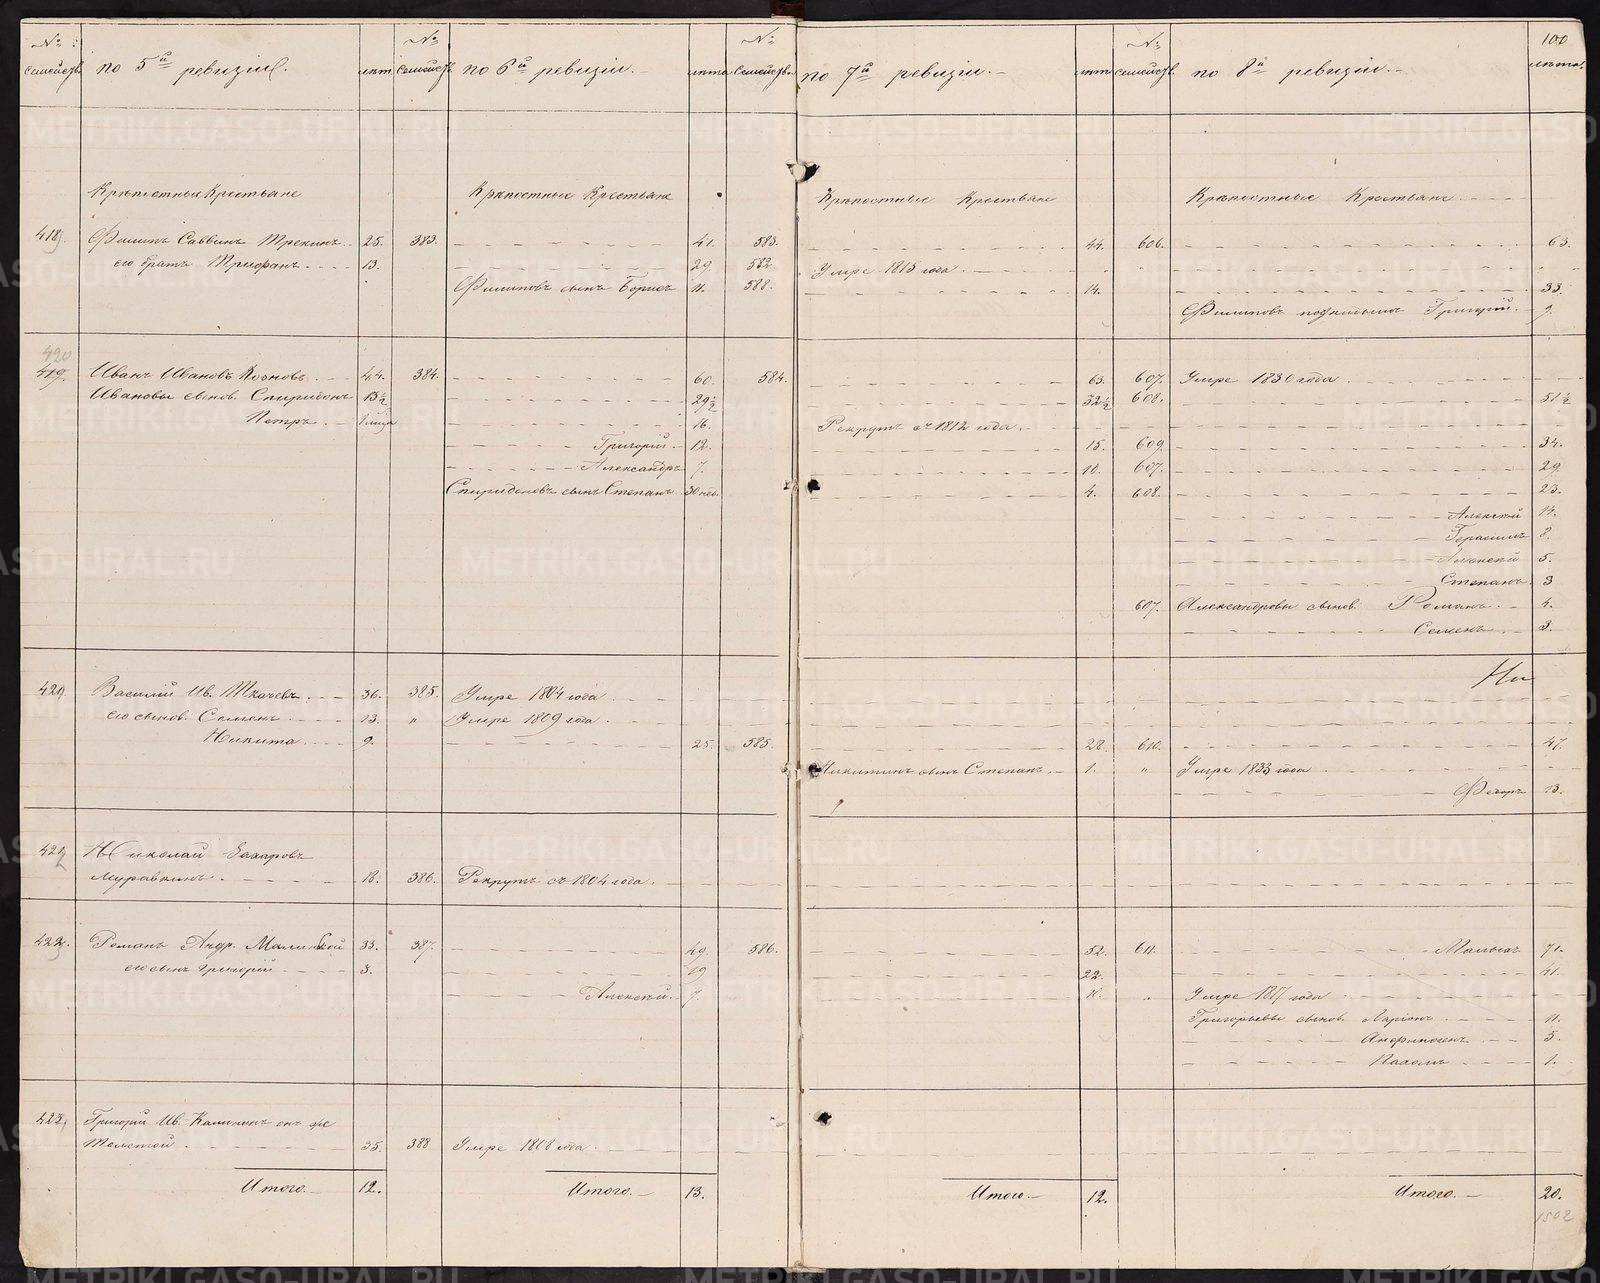 № семейств. по 5й ревизіи. лѣт. № семейств. по 6й ревизіи. лѣта № семейств. по 7й ревизіи. лѣт. № семейств. по 8й ревизіи. 100 лѣта.
Крѣпостные Крестьяне Крѣпостные Крестьяне Крѣпостные Крестьяне Крѣпостные Крестьяне
Филипъ Саввинъ 25. 383. 41. 583. 44. 606. 63.
его братъ Трифонъ 13. 29. 582. Умре 1815 года.
Филиповъ сынъ Борисъ 11. 588. 14. 33.
Филиповъ Григорій. 9.
420
419. Иванъ Ивановъ 44. 384. 60. 584. 63. 607. Умре 1830 года.
Ивановы сынов. Спиридонъ 13½ 29½ 32½ 608. 51½
Петръ 16. Рекрутъ съ 1812 года.
Григорій 12. 15. 609. 34.
Александръ 7. 10. 607. 29.
Спиридоновъ сынъ Степанъ 30 нед. 4. 608. 23.
Алексѣй 14.
Герасимъ 8.
5.
Степанъ. 3
607. Александровы сынов. Романъ 4.
Семенъ 3.
Ни
Василій Ив. Ткачевъ 36. 385. Умре 1804 года
его сынов. Семенъ 13. " Умре 1809 года
Никита 9. 25. 585. 28. 610. 47.
Никитинъ сынъ Степанъ 1. " Умре 1833 года
Федоръ 13.
Николай Захаровъ
Муравкинъ 18. 386. Рекрутъ съ 1804 года.
Романъ Андр. 33. 387. 49. 586. 52. 611. 71.
его сынъ Григорій 3. 19 22. 41.
Алексѣй 7. Умре 1817 года
Григорьевы сынов. Ларіонъ 11.
5.
Пахомъ 1.
Григорій Ив. Калининъ онъ же
Толстой 35. 388 Умре 1808 года
Итого. 12. Итого. 13. Итого. 12. Итого. 20.
1502
METRIKI.GASO-URAL.RU